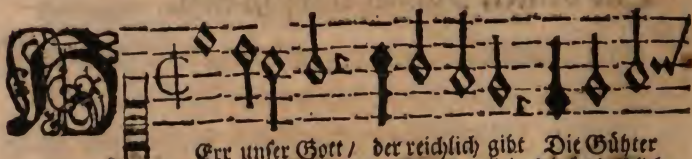 HErr unser Gott / der reichlich gibt Die Gühter